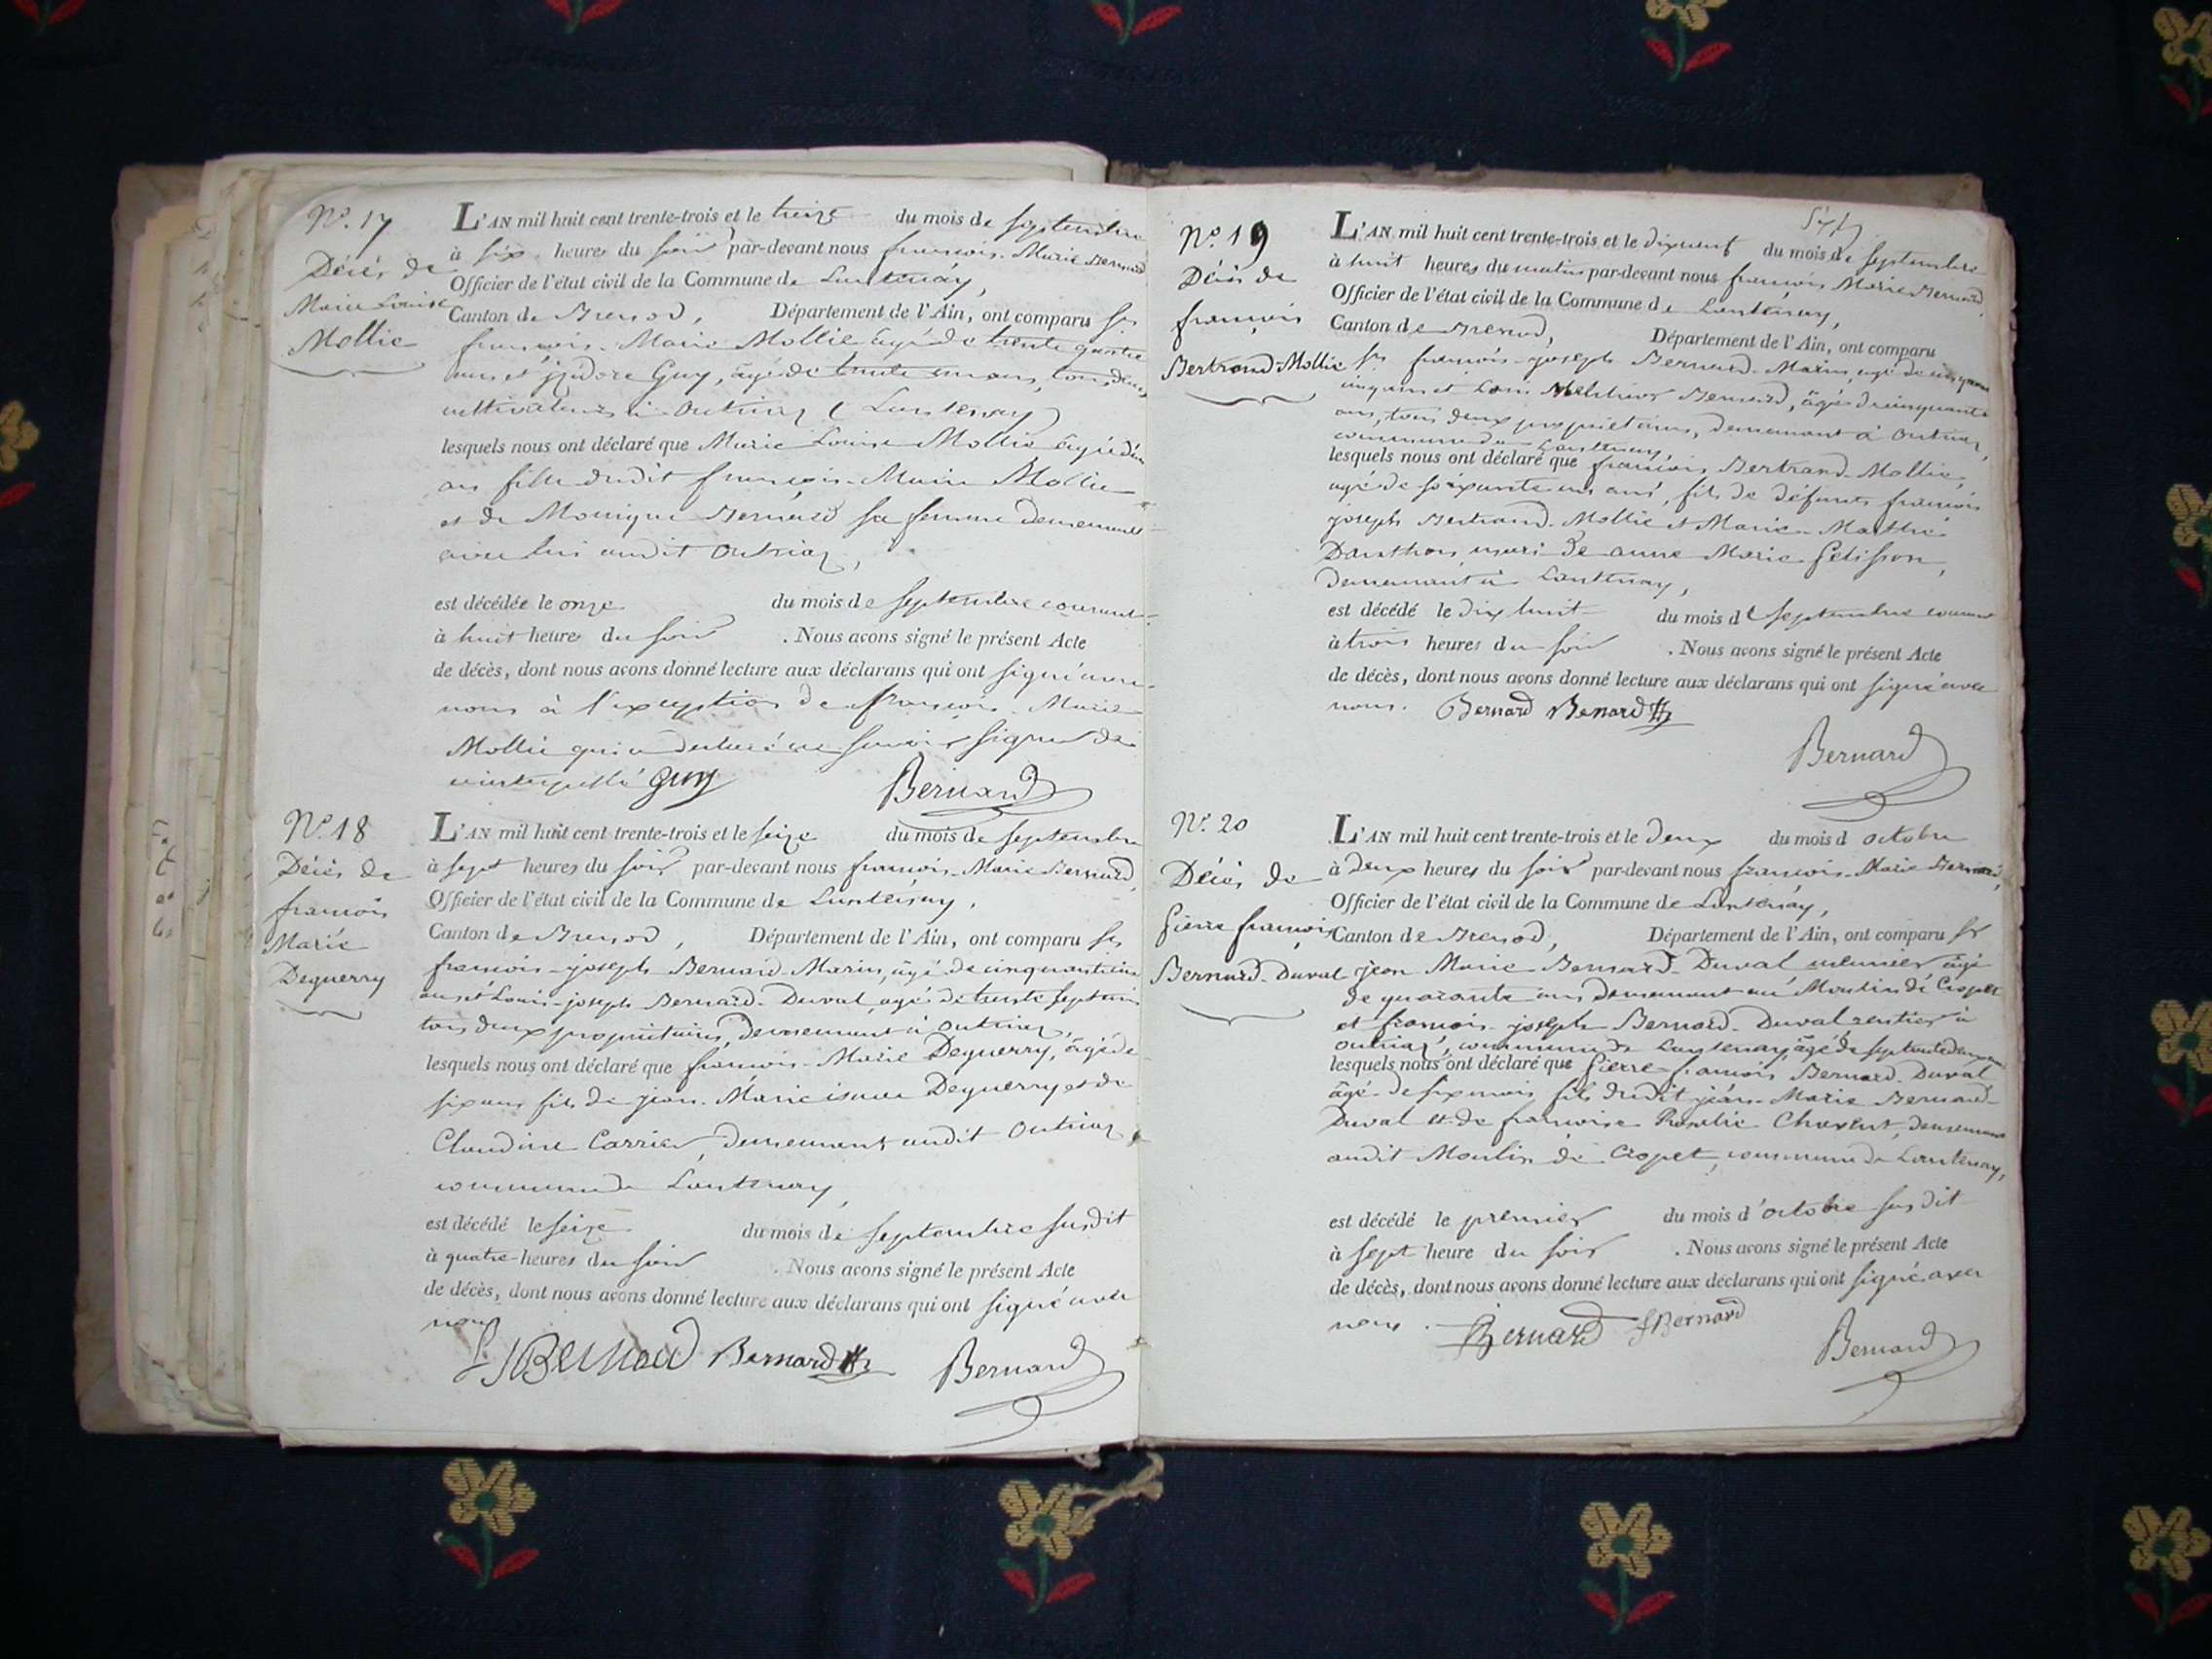 N.° 17
Décès de
Marie Louise
Mollie
L'AN mil huit cent trente-trois et le treize du mois de septembre
à six heures du soir par-devant nous françois-Marie Bernard
Officier de l'état civil de la Commune de Lantenay,
Canton de Brenod, Département de l'Ain, ont comparu srs
françois-Marie Mollie âgé de trente quatre
ans et isidore Guy, âgé de trente un ans, tous deux
cultivateurs à Outriaz (Lantenay)
lesquels nous ont déclaré que Marie Louise Mollie âgée d'un
an fille dudit françois-Marie Mollie
et de Monique Bernard sa femme demeurant
avec lui audit Outriaz,
est décédée le onze du mois de septembre courant
à huit heures du soir . Nous avons signé le présent Acte
de décès, dont nous avons donné lecture aux déclarans qui ont signé avec
nous à l'exception de françois-Marie
Mollie qui a déclaré ne savoir signer de
ce interpellé Guy Bernard
N.° 18
Décès de
françois
Marie
Deguerry
L'AN mil huit cent trente-trois et le seize du mois de septembre
à sept heures du soir par-devant nous françois-Marie Bernard,
Officier de l'état civil de la Commune de Lantenay,
Canton de Brenod, Département de l'Ain, ont comparu srs
françois-joseph Bernard-Marin, âgé de cinquante cinq
ans et Louis-joseph Bernard-Duval, âgé de trente sept ans
tous deux propriétaires, demeurant à Outriaz,
lesquels nous ont déclaré que françois-Marie Deguerry, âgé de
six ans fils de jean-Marie Deguerry et de
Claudine Carrier, demeurant audit Outriaz,
commune de Lantenay,
est décédé le seize du mois de septembre susdit
à quatre heures du soir . Nous avons signé le présent Acte
de décès, dont nous avons donné lecture aux déclarans qui ont signé avec
nous
LJBernard Bernard Bernard
N.° 19
Décès de
françois
Bertrand-Mollie
L'AN mil huit cent trente-trois et le dixneuf du mois de septembre
à huit heures du matin par-devant nous françois Marie Bernard,
Officier de l'état civil de la Commune de Lantenay,
Canton de Brenod, Département de l'Ain, ont comparu
srs françois-joseph Bernard-Marin, âgé de cinquante
cinq ans et Louis Melchior Bernard, âgé de cinquante
ans, tous deux propriétaires, demeurant à Outriaz,
commune de Lantenay,
lesquels nous ont déclaré que françois Bertrand-Mollie,
âgé de soixante un ans, fils de défunts françois
joseph Bertrand-Mollie et Marie-Marthe
Danthon, mari de anne Marie Pelisson,
demeurant à Lantenay,
est décédé le dix huit du mois de septembre courant
à trois heures du soir . Nous avons signé le présent Acte
de décès, dont nous avons donné lecture aux déclarans qui ont signé avec
nous. Bernard Benard
Bernard
N.° 20
Décès de
Pierre françois
Bernard-Duval
L'AN mil huit cent trente-trois et le deux du mois d octobre
à deux heures du soir par-devant nous françois-Marie Bernard,
Officier de l'état civil de la Commune de Lantenay,
Canton de Brenod, Département de l'Ain, ont comparu srs
jean Marie Bernard-Duval meunier âgé
de quarante ans demeurant au Moulin de Cropet
et françois-joseph Bernard-Duval rentier à
outriaz, commune de Lantenay, âgé de septante deux ans
lesquels nous ont déclaré que Pierre-françois Bernard-Duval
âgé de six mois fils dudit jean-Marie Bernard-
Duval et de françoise Rosalie Charent, demeurant
audit Moulin de Cropet, commune de Lantenay,
est décédé le premier du mois d'octobre susdit
à sept heure du soir . Nous avons signé le présent Acte
de décès, dont nous avons donné lecture aux déclarans qui ont signé avec
nous. Bernard fBernard
Bernard